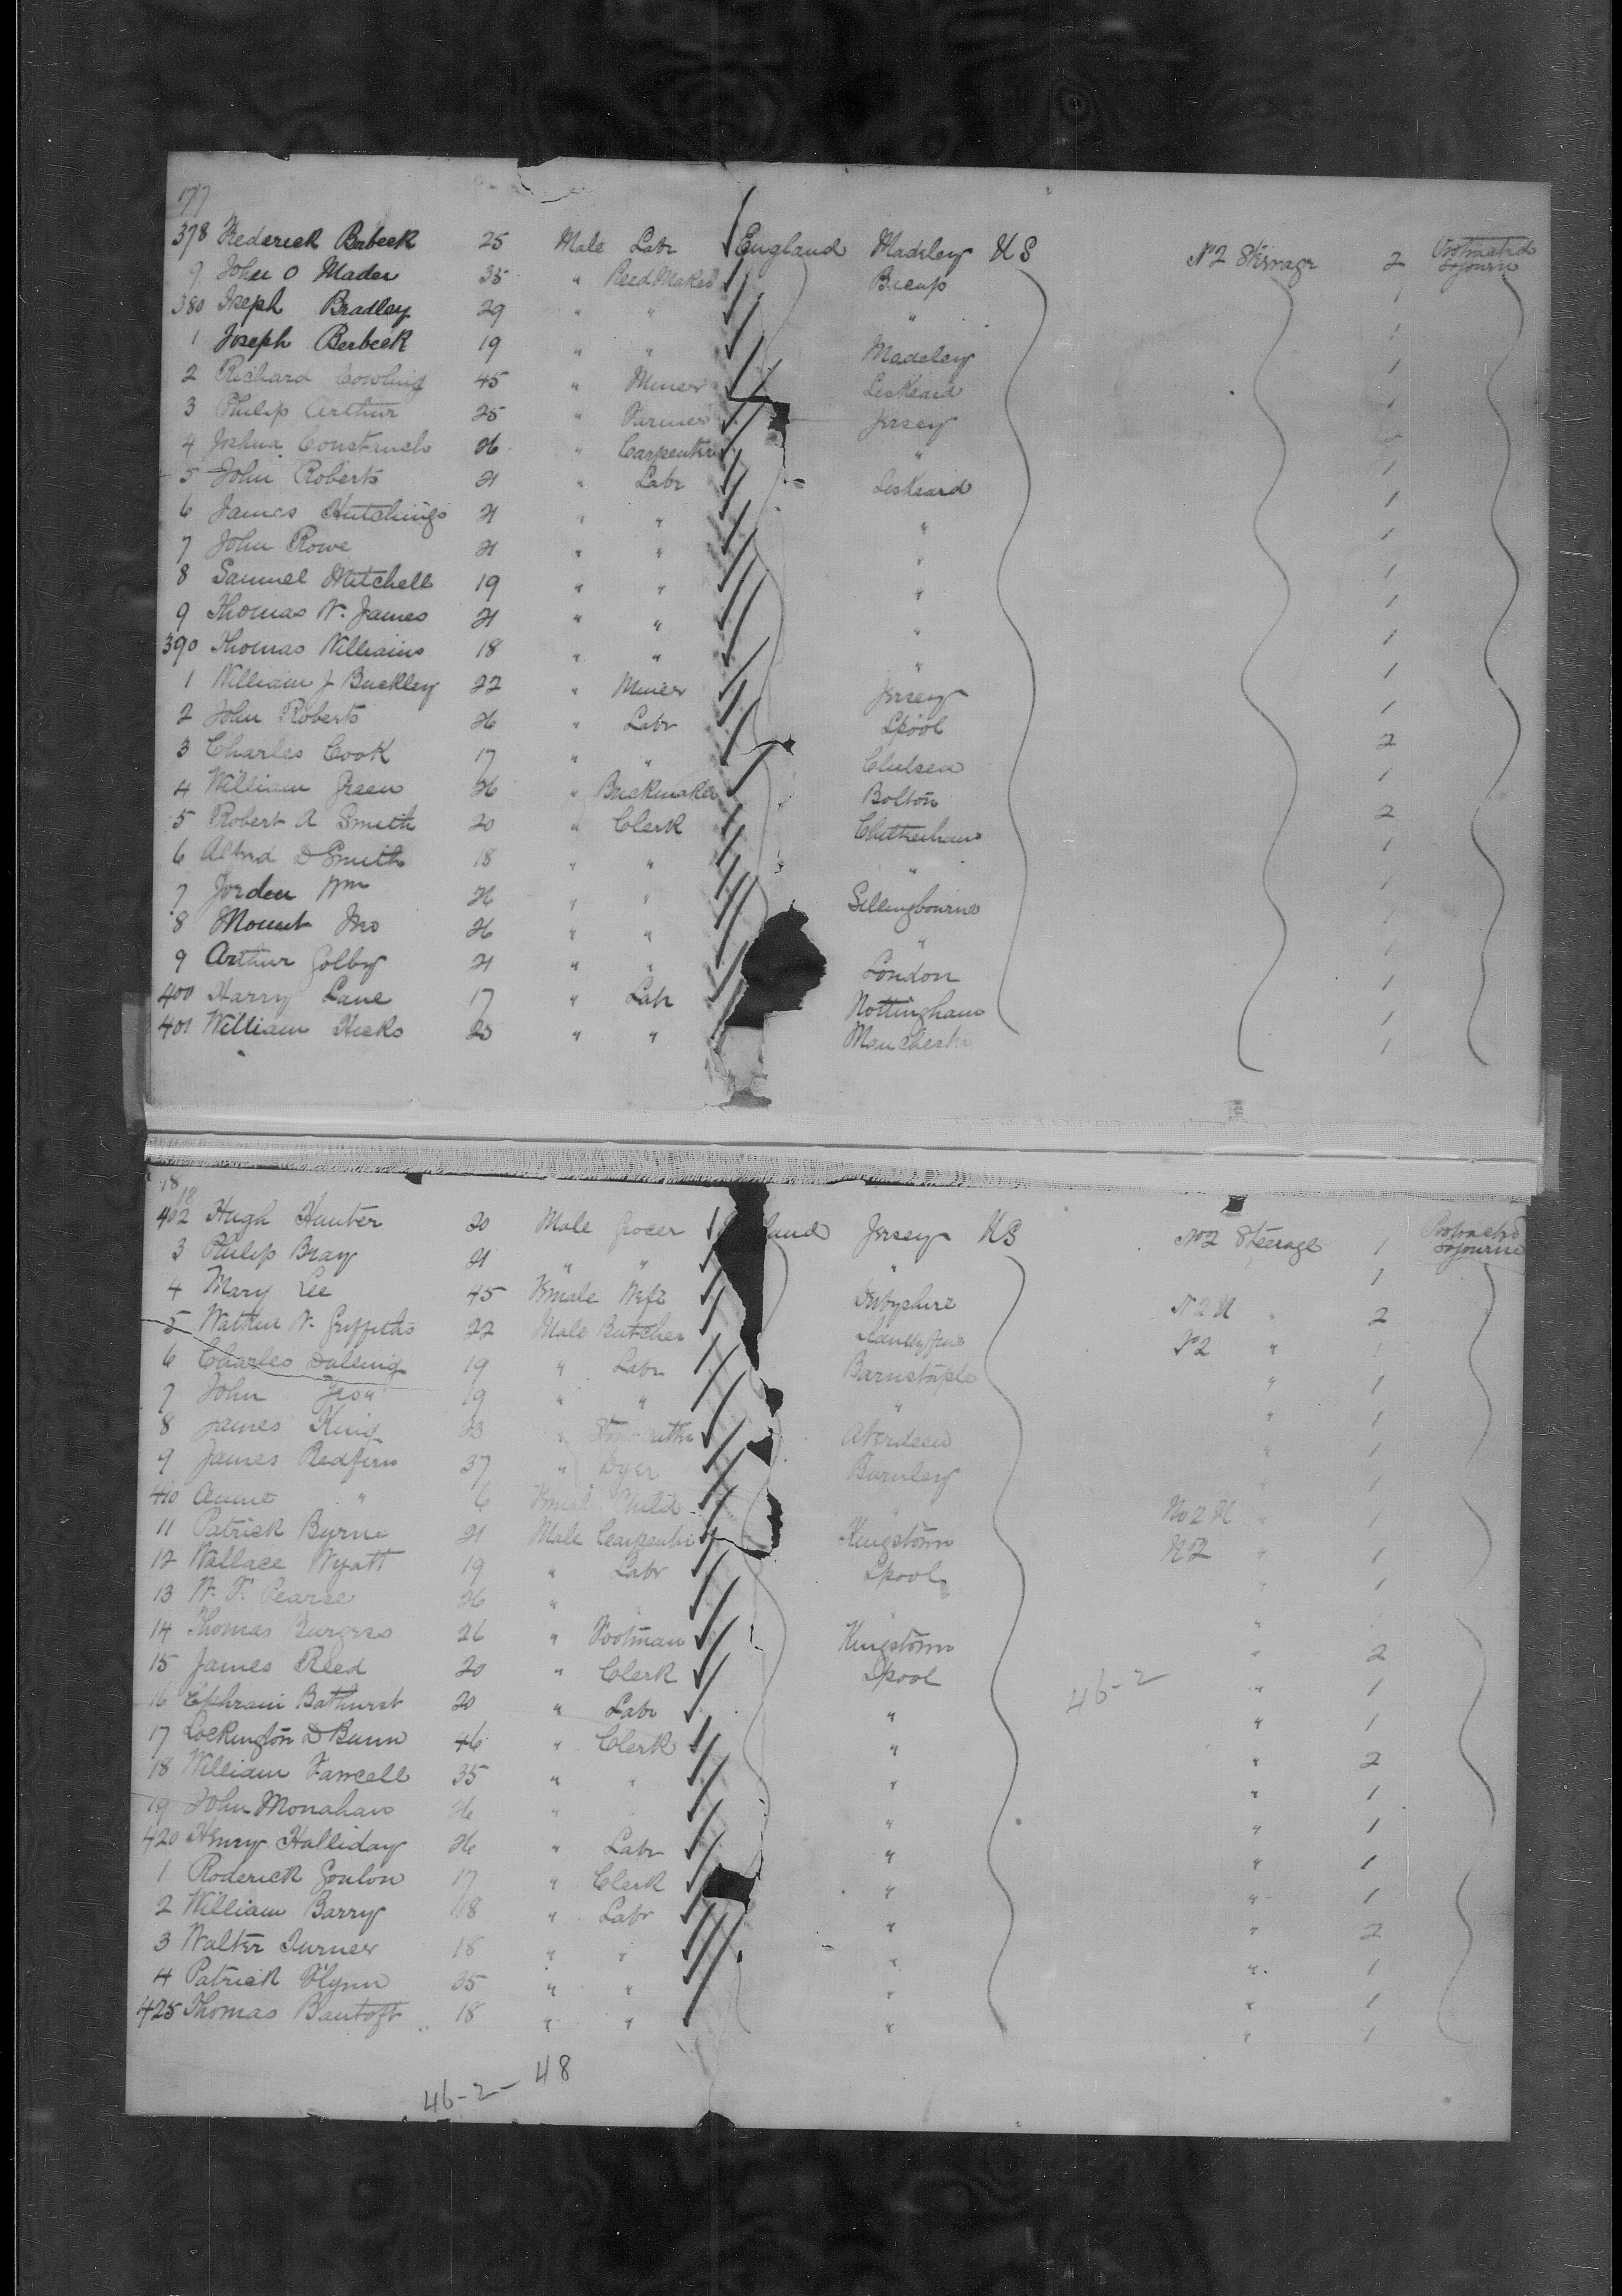 17
378 Frederick Babeek 25 Male Labr England Madeley US No 2 Steerage 2 Protracted Sojourn
9 John O Maden 35 " Reed Maker Bacup 1
380 Joseph Bradley 29 " " " 1
1 Joseph Berbeek 19 " " Madeley 1
2 Richard Cowling 45 " Miner Leskeard 1
3 Philip Arthur 25 " Farmer Jersey
4 Joshua 26 " Carpenter " 1
5 John Roberts 21 " Labr Leskeard 1
6 James Hutchings 21 " " " 1
7 John Rowe 21 " " " 1
8 Samuel Mitchell 19 " " " 1
9 Thomas W. James 21 " " " 1
390 Thomas Williams 18 " " " 1
1 William J Buckley 22 " Miner Jersey 1
2 John Roberts 26 " Labr Lpool 2
3 Charles Cook 17 " " Chelsea 1
4 William Green 26 " Brickmaker Bolton 2
5 Robert A Smith 20 " Clerk Cheltenham 1
6 Alfred D Smith 18 " " " 1
7 Jorden Wm 26 " " Sittingbourne 1
8 Mount Jno 26 " " " 1
9 Arthur Golby 21 " " London 1
400 Harry Lane 17 " Labr Nottingham 1
401 William Hicks 25 " " Manchester 1
18
18
402 Hugh Hunter 20 Male Grocer land Jersey US No 2 Steerage 1 Protracted Sojourn
3 Philip Bray 21 " " " 1
4 Mary Lee 45 Female Wife Derbyshire No 2 " 2
5 W. Griffiths 22 Male Butcher No 2 " 1
6 Charles Dalling 19 " Labr Barnstaple " 1
7 John 19 " " " " 1
8 James King 23 " Aberdeen " 1
9 James Redfern 37 " Dyer Burnley " 1
410 Annie " 6 Female Child No 2 " 1
11 Patrick Byrne 21 Male Carpenter Kingstown No 2 " 1
12 Wallace Wyatt 19 " Labr Lpool " 1
13 W. F. Pearse 26 " "
14 Thomas Burgess 26 " Footman Kingstown " 2
15 James Reed 20 " Clerk Lpool 46-2 " 1
16 Ephraim Bathurst 20 " Labr " " 1
17 Lockington D Bunn 46 " Clerk " " 2
18 William Fawcell 35 " " " " 1
19 John Monahan 26 " " " 1
420 Henry Halliday 26 " Labr " " 1
1 Roderick Goulon 17 " Clerk " " 1
2 William Barry 18 " Labr " " 2
3 Walter Turner 18 " " " " 1
4 Patrick Flynn 35 " " " " 1
425 Thomas Bantoft 18 " " " " 1
46-2- 48